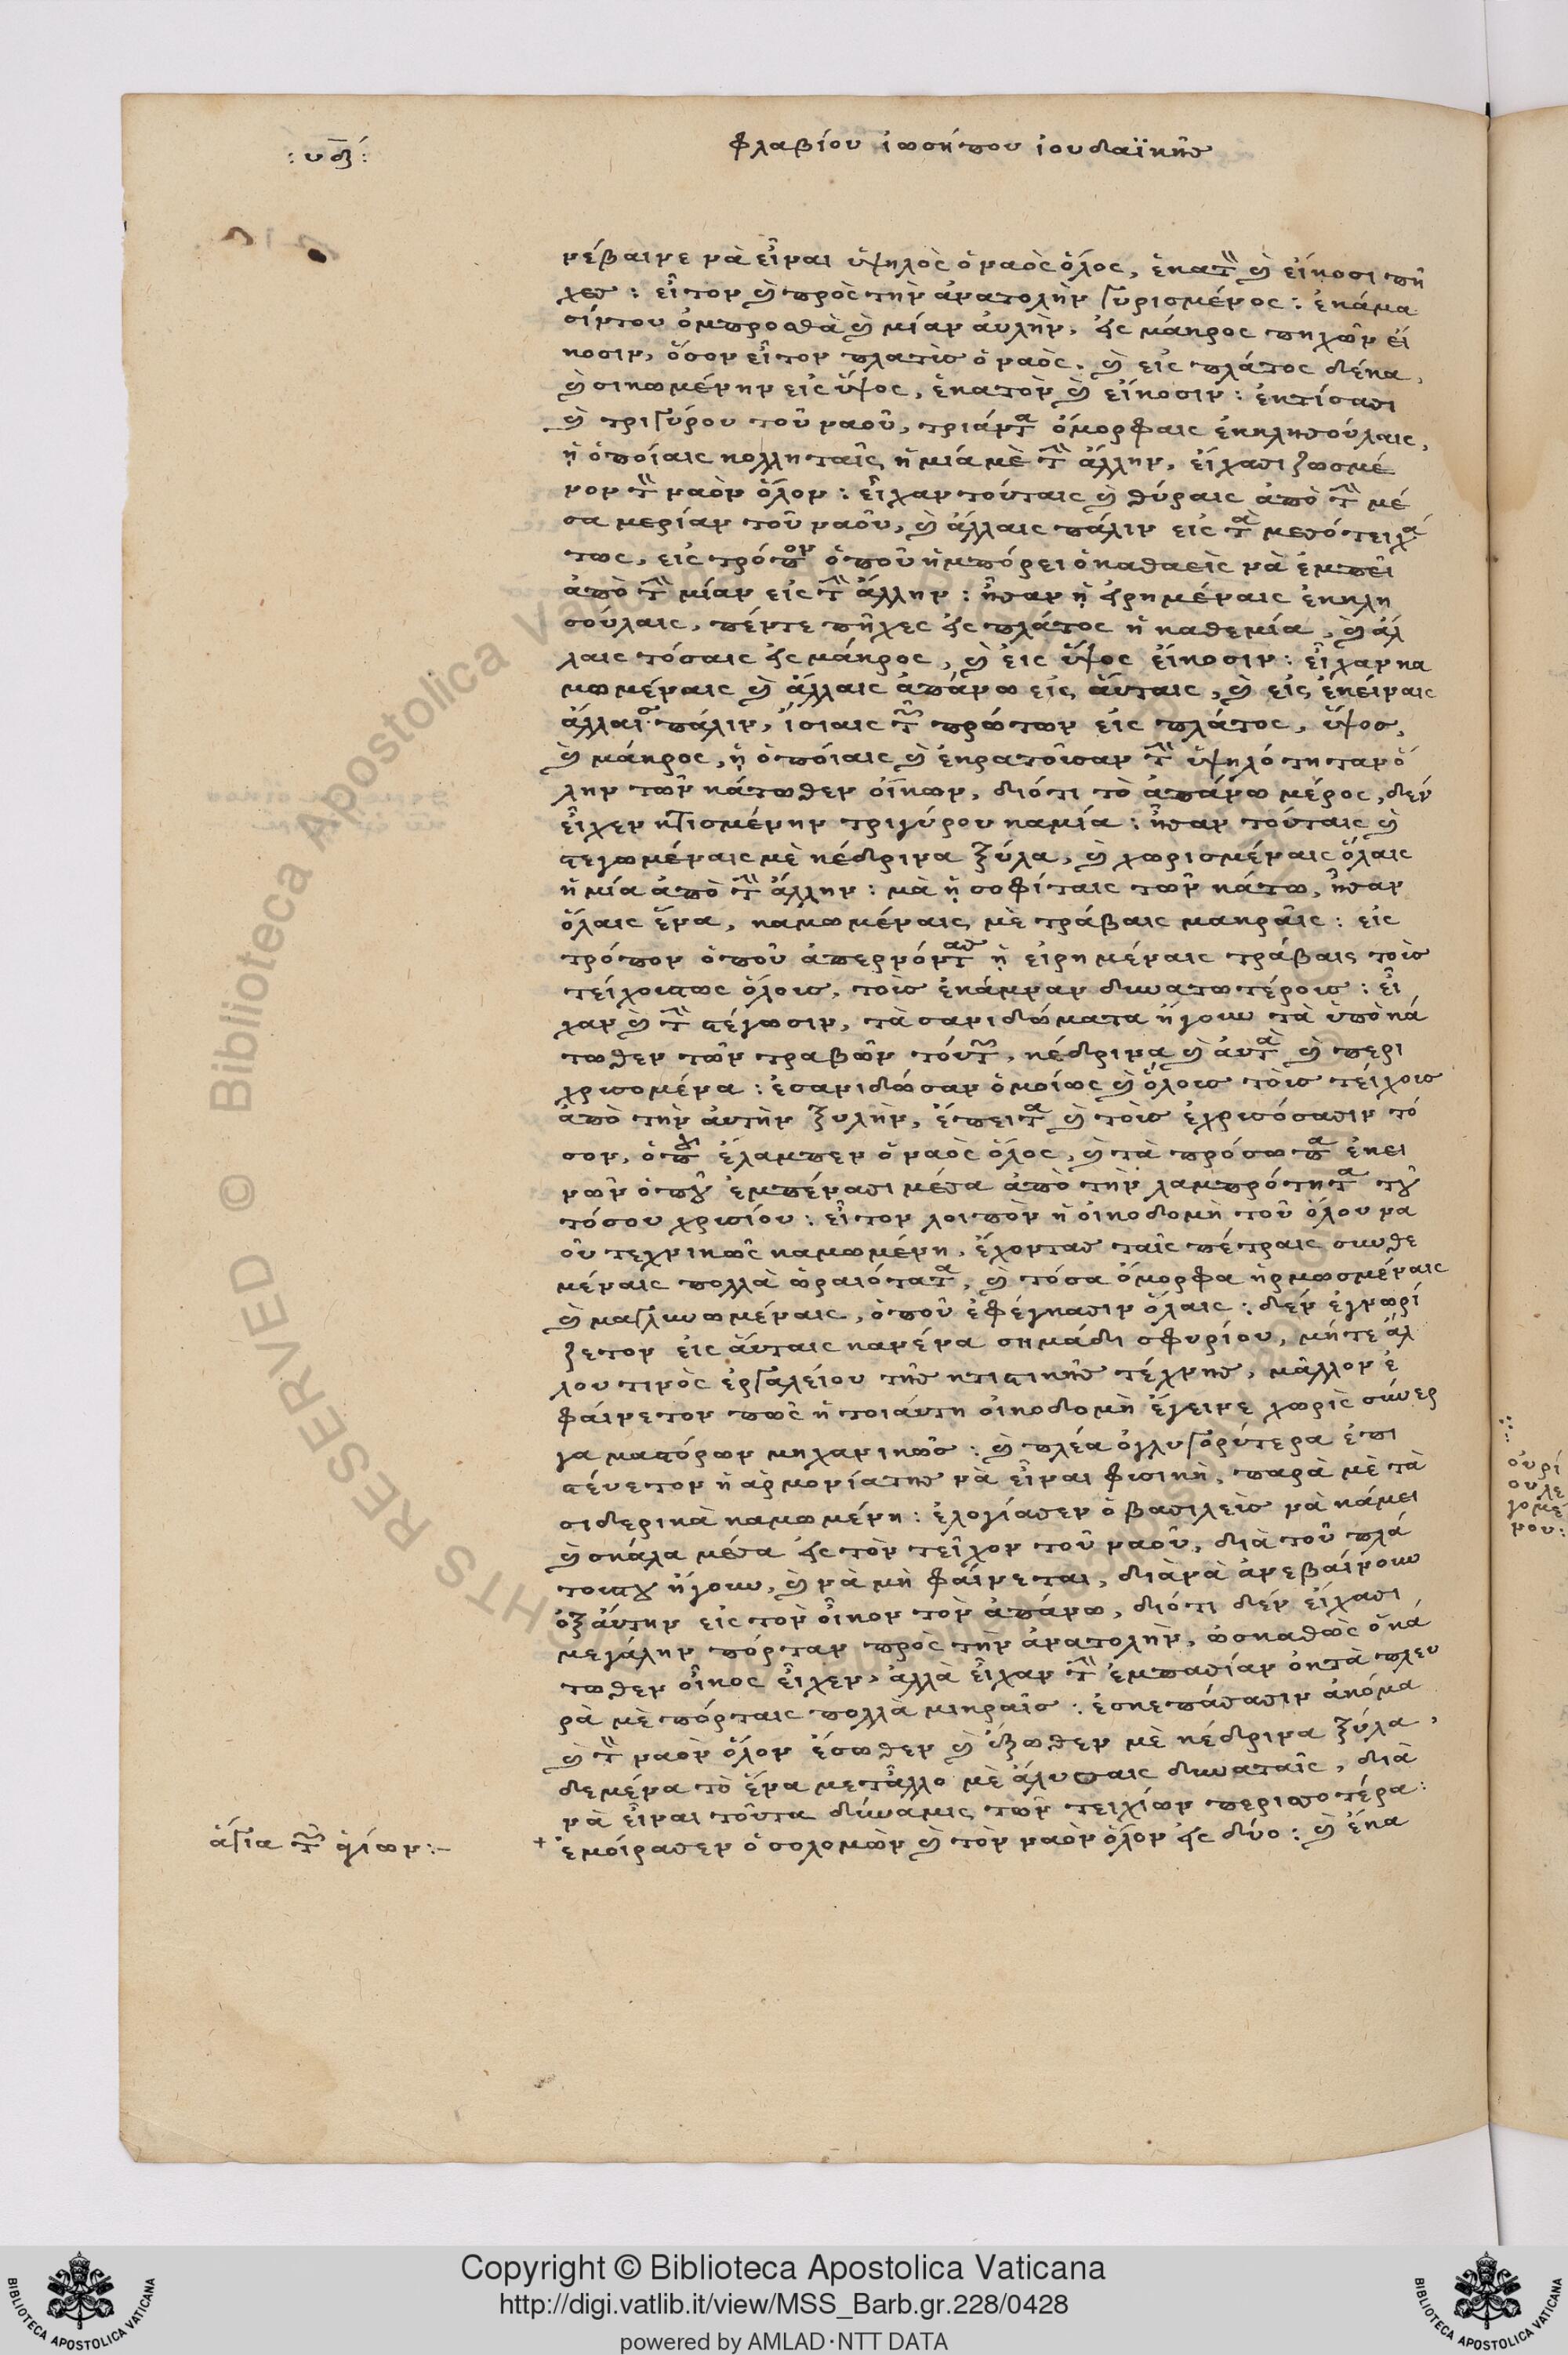 : υξ :
φλαβίου ἰωσήπου ἰουδαϊκῆς
νέβαινε νὰ εἶναι ὑψηλὸς ὁ ναὸς ὅλος, ἑκατὸν καὶ εἴκοσι πῆ
χες : εἶτον καὶ πρὸς τὴν ἀνατολὴν γυρισμένος : ἐκάμα
σίντου ὀμπροσθὰ καὶ μίαν ἀυλὴν, εἰς μάκρος πηχῶν εἴ
κοσιν, ὅσον εἶτον πλατὶς ὁ ναὸς, καὶ εἰς πλάτος δέκα,
καὶ σικωμένην εἰς ὕψος, ἑκατὸν καὶ εἴκοσιν : ἐκτίσασι
καὶ τριγύρου τοῦ ναοῦ, τριάντα ὄμορφαις ἐκκλησούλαις,
ᾑ ὁποίαις κολληταῖς ἡ μιά μὲ τὴν ἄλλην, εἴχασι ζωσμέ
νον τὸν ναὸν ὅλον : εἶχαν τούταις καὶ θύραις ἀπὸ τὴν μέ
σα μερίαν τοῦ ναοῦ, καὶ ἄλλαις πάλιν εἰς τὰ μεσότειχά
τως, εἰς τρόπον ὁποῦ ἠμπόρει ὁ καθαεὶς νὰ ἐμπεῖ
ἀπὸ τὴν μίαν εἰς τὴν ἄλλην : ἦσαν ᾑ εἰρημέναις ἐκκλη
σούλαις, πέντε πῆχες εἰς πλάτος ἡ καθεμία, καὶ ἄλ
λαις τόσαις εἰς μάκρος, καὶ εἰς ὕψος εἴκοσιν : εἶχαν κα
μωμέναις καὶ ἄλλαις ἀπάνω εἰς ἄυταις, καὶ εἰς ἐκείναις
ἄλλαις πάλιν, ἴσιαις τῶν πρώτων εἰς πλάτος, ὕψος,
καὶ μάκρος, ᾑ ὁποίαις καὶ ἐκρατοῦσαν τὴν ὑψηλότηταν ὅ
λην τῶν κάτωθεν οἴκων, διότι τὸ ἀπάνω μέρος, δὲν
εἶχεν κτισμένην τριγύρου καμία : ἦσαν τούταις καὶ
στεγωμέναις μὲ κέδρινα ξύλα, καὶ χωρισμέναις ὅλαις
ἡ μία ἀπὸ τὴν ἄλλην : μὰ ᾑ σοφίταις τῶν κάτω, ἦσαν
ὅλαις ἕνα, καμωμέναις μὲ τράβαις μακραῖς : εἰς
τρόπον ὁποῦ ἀπερνόντας ᾑ εἰρημέναις τράβαις τοὶς
τείχοιστως ὅλοις, τοὶς ἐκάμναν δυνατωτέροις : εἶ
χαν καὶ τὴν στέγωσιν, τὰ σανιδώματα ἤγουν τὰ ὑποκά
τωθεν τῶν τραβῶν τούτων, κέδρινα καὶ ἀυτὰ καὶ περι
χρισομένα : ἐσανιδώσαν ὁμοίως καὶ ὅλοις τοὶς τείχοις
ἀπὸ τὴν ἀυτὴν ξυλὴν, ἔπειτα καὶ τοὶς ἐχρισόσασιν τό
σον, ὁποῦ ἔλαμπεν ὁ ναὸς ὅλος, καὶ τὰ πρόσωπα ἐκει
νῶν ὁποῦ ἐμπένασι μέσα ἀπὸ τὴν λαμπρότητα τοῦ
τόσου χρισίου : εἶτον λοιπὸν ἡ οἰκοδομὴ τοῦ ὅλου να
οῦ τεχνικῶς καμωμένη, ἔχοντας ταῖς πέτραις συνθε
μέναις πολλὰ ὡραιότατα, καὶ τόσα ὄμορφα ἡρμωσμέναις
καὶ μαγλυνωμέναις, ὁποῦ ἐφέγκασιν ὅλαις : δὲν ἐγνωρί
ζετον εἰς ἄυταις κανένα σημάδι σφυρίου, μήτε ἄλ
λου τινὸς ἐργαλείου τῆς κτιστικῆς τέχνης, μᾶλλον ἐ
φάινετον πῶς ἡ τοιάυτη οἰκοδομὴ ἔγεινε χωρὶς σύνερ
γα μαστόρων μηχανικῶς : καὶ πλέα ὀγλυγορύτερα ἐπι
στένετον ἡ ἁρμονίατης νὰ εἶναι φισικὴ, παρὰ μὲ τὰ
σιδερικὰ καμωμένη : ἐλογίασεν ὁ βασιλεὶς νὰ κάμει
καὶ σκάλα μέσα εἰς τὸν τεῖχον τοῦ ναοῦ, διὰ τοῦ πλά
τουστου ἤγουν, καὶ νὰ μὴ φάινεται, διὰ νὰ ἀνεβαίνουν
ὀξάυτην εἰς τὸν οἶκον τὸν ἀπάνω, διότι δὲν εἴχασι
μεγάλην πόρταν πρὸς τὴν ἀνατολὴν, ὡσκαθῶς ὁ κά
τωθεν οἶκος εἶχεν, ἀλλὰ εἶχαν τὴν ἐμπασίαν ὀκτὰ πλευ
ρὰ μὲ πόρταις πολλὰ μικραῖς : ἐσκεπάσασιν ἀκόμα
καὶ τὸν ναὸν ὅλον ἔσωθεν καὶ ἔξωθεν μὲ κέδρινα ξύλα,
δεμένα τὸ ἕνα μετἄλλο μὲ ἄλυσσαις δυναταῖς, διὰ
νὰ εἶναι τοῦτα δύναμις τῶν τειχίων περισοτέρα :
+ ἐμοίρασεν ὁ σολομὼν καὶ τὸν ναὸν ὅλον εἰς δύο : καὶ ἔκα
ἅγια τῶν ἁγίων :-
ὀυρί
ου λε
γομέ
νου :
Copyright © Biblioteca Apostolica Vaticana
http://digi.vatlib.it/view/MSS_Barb.gr.228/0428
powered by AMLAD·NTT DATA
BIBLIOTECA APOSTOLICA VATICANA
BIBLIOTECA APOSTOLICA VATICANA